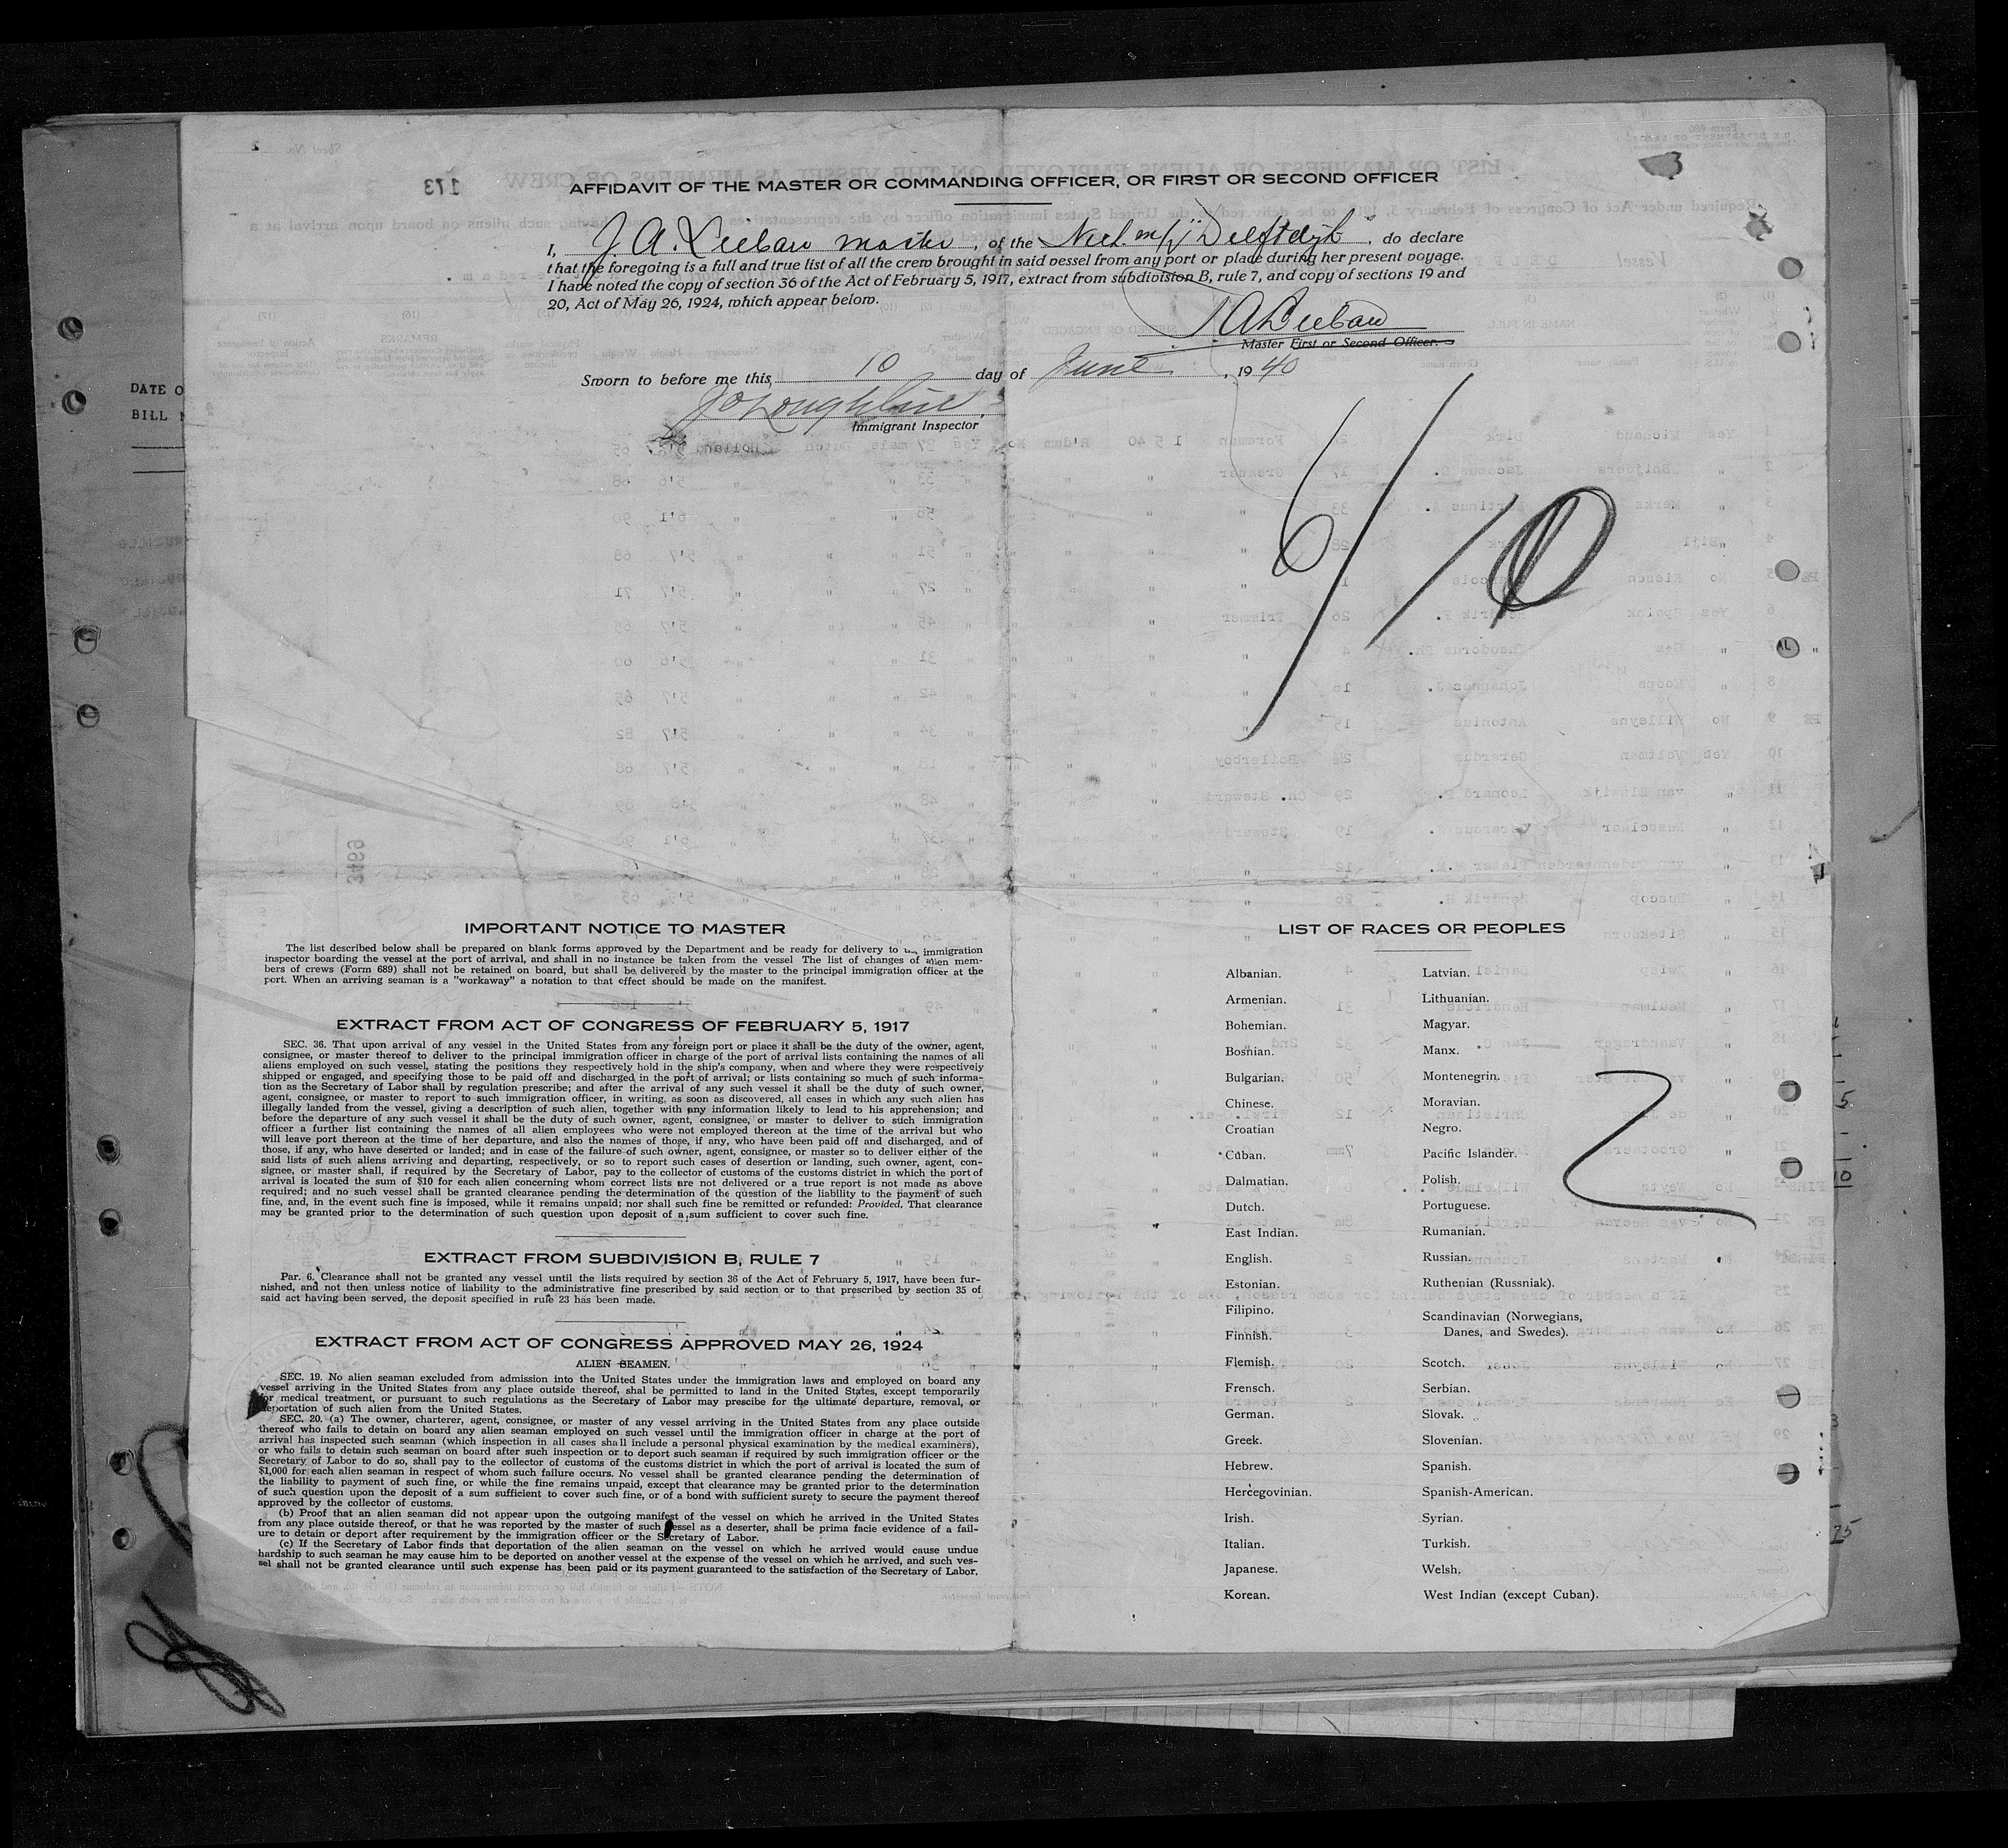 AFFIDAVIT OF THE MASTER OR COMMANDING OFFICER, OR FIRST OR SECOND OFFICER
I, J. A. master, of the Ned. m/s Delftdyk, do declare
that the foregoing is a full and true list of all the crew brought in said vessel from any port or place during her present voyage.
I have noted the copy of section 36 of the Act of February 5, 1917, extract from subdivision B, rule 7, and copy of sections 19 and
20, Act of May 26, 1924, which appear below.
Master First or Second Officer.
Sworn to before me this 10 day of June, 1940
Immigrant Inspector
6/10
DATE O
BILL
IMPORTANT NOTICE TO MASTER
The list described below shall be prepared on blank forms approved by the Department and be ready for delivery to immigration
inspector boarding the vessel at the port of arrival, and shall in no instance be taken from the vessel The list of changes of alien mem-
bers of crews (Form 689) shall not be retained on board, but shall be delivered by the master to the principal immigration officer at the
port. When an arriving seaman is a "workaway" a notation to that effect should be made on the manifest.
EXTRACT FROM ACT OF CONGRESS OF FEBRUARY 5, 1917
SEC. 36. That upon arrival of any vessel in the United States from any foreign port or place it shall be the duty of the owner, agent,
consignee, or master thereof to deliver to the principal immigration officer in charge of the port of arrival lists containing the names of all
aliens employed on such vessel, stating the positions they respectively hold in the ship's company, when and where they were respectively
shipped or engaged, and specifying those to be paid off and discharged in the port of arrival; or lists containing so much of such informa-
tion as the Secretary of Labor shall by regulation prescribe; and after the arrival of any such vessel it shall be the duty of such owner,
agent, consignee, or master to report to such immigration officer, in writing, as soon as discovered, all cases in which any such alien has
illegally landed from the vessel, giving a description of such alien, together with any information likely to lead to his apprehension; and
before the departure of any such vessel it shall be the duty of such owner, agent, consignee, or master to deliver to such immigration
officer a further list containing the names of all alien employees who were not employed thereon at the time of the arrival but who
will leave port thereon at the time of her departure, and also the names of those, if any, who have been paid off and discharged, and of
those, if any, who have deserted or landed; and in case of the failure of such owner, agent, consignee, or master so to deliver either of the
said lists of such aliens arriving and departing, respectively, or so to report such cases of desertion or landing, such owner, agent, con-
signee, or master shall, if required by the Secretary of Labor, pay to the collector of customs of the customs district in which the port of
arrival is located the sum of $10 for each alien concerning whom correct lists are not delivered or a true report is not made as above
required; and no such vessel shall be granted clearance pending the determination of the question of the liability to the payment of such
fine, and, in the event such fine is imposed, while it remains unpaid; nor shall such fine be remitted or refunded: Provided, That clearance
may be granted prior to the determination of such question upon deposit of a sum sufficient to cover such fine.
EXTRACT FROM SUBDIVISION B, RULE 7
Par. 6. Clearance shall not be granted any vessel until the lists required by section 36 of the Act of February 5, 1917, have been fur-
nished, and not then unless notice of liability to the administrative fine prescribed by said section or to that prescribed by section 35 of
said act having been served, the deposit specified in rule 23 has been made.
EXTRACT FROM ACT OF CONGRESS APPROVED MAY 26, 1924
ALIEN SEAMEN.
SEC. 19. No alien seaman excluded from admission into the United States under the immigration laws and employed on board any
vessel arriving in the United States from any place outside thereof, shal be permitted to land in the United States, except temporarily
for medical treatment, or pursuant to such regulations as the Secretary of Labor may prescibe for the ultimate departure, removal, or
deportation of such alien from the United States.
SEC. 20. (a) The owner, charterer, agent, consignee, or master of any vessel arriving in the United States from any place outside
thereof who fails to detain on board any alien seaman employed on such vessel until the immigration officer in charge at the port of
arrival has inspected such seaman (which inspection in all cases shall include a personal physical examination by the medical examiners),
or who fails to detain such seaman on board after such inspection or to deport such seaman if required by such immigration officer or the
Secretary of Labor to do so, shall pay to the collector of customs of the customs district in which the port of arrival is located the sum of
$1,000 for each alien seaman in respect of whom such failure occurs. No vessel shall be granted clearance pending the determination of
the liability to payment of such fine, or while the fine remains unpaid, except that clearance may be granted prior to the determination
of such question upon the deposit of a sum sufficient to cover such fine, or of a bond with sufficient surety to secure the payment thereof
approved by the collector of customs.
(b) Proof that an alien seaman did not appear upon the outgoing manifest of the vessel on which he arrived in the United States
from any place outside thereof, or that he was reported by the master of such vessel as a deserter, shall be prima facie evidence of a fail-
ure to detain or deport after requirement by the immigration officer or the Secretary of Labor.
(c) If the Secretary of Labor finds that deportation of the alien seaman on the vessel on which he arrived would cause undue
hardship to such seaman he may cause him to be deported on another vessel at the expense of the vessel on which he arrived, and such ves-
sel shall not be granted clearance until such expense has been paid or its payment guaranteed to the satisfaction of the Secretary of Labor.
LIST OF RACES OR PEOPLES
Albanian.
Armenian.
Bohemian.
Bosnian.
Bulgarian.
Chinese.
Croatian
Cuban.
Dalmatian.
Dutch.
East Indian.
English.
Estonian.
Filipino.
Finnish.
Flemish.
Frensch.
German.
Greek.
Hebrew.
Hercegovinian.
Irish.
Italian.
Japanese.
Korean.
Latvian.
Lithuanian.
Magyar.
Manx.
Montenegrin.
Moravian.
Negro.
Pacific Islander.
Polish.
Portuguese.
Rumanian.
Russian.
Ruthenian (Russniak).
Scandinavian (Norwegians,
Danes, and Swedes).
Scotch.
Serbian.
Slovak.
Slovenian.
Spanish.
Spanish-American.
Syrian.
Turkish.
Welsh.
West Indian (except Cuban).